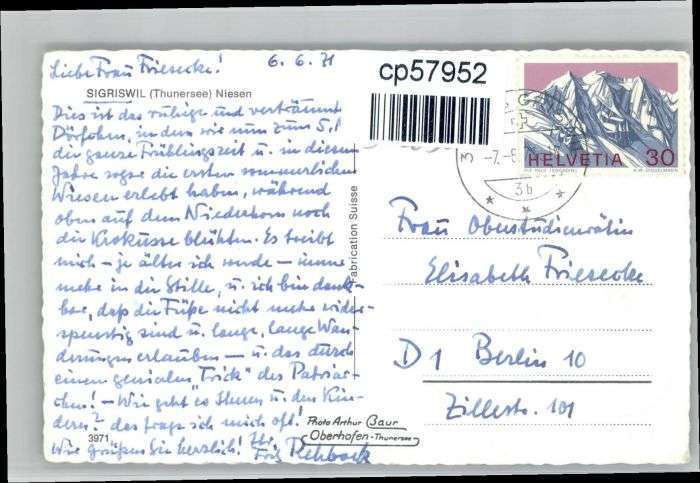 Liebe Frau Friesecke! 6.6.71
SIGRISWIL (Thunersee) Niesen
Dies ist das ruhige und verträumte
Dörfchen, in dem wir nun zum 5.
die ganze Frühlingszeit u. in diesem
Jahre sogar die ersten sommerlichen
Wiesen erlebt haben, während
oben auf dem Niederhorn noch
die Krokusse blühten. Es treibt
mich - je älter ich werde - immer
mehr in die Stille, u. ich bin dank-
bar, daß die Füße nicht mehr wider-
spenstig sind u. lange, lange Wan-
derungen erlauben - u. das durch
einen genialen "Trick" des
- Wie geht es Ihnen u. den Kin-
dern? das frage ich mich oft!
Wir grüßen Sie herzlich! Ihr
Fritz Rehbock
3971
Photo Arthur Baur
Oberhofen-Thunersee
Fabrication Suisse
cp57952
HELVETIA 30
-7.-6
3b
Frau Oberstudienrätin
Elisabeth Friesecke
D 1 Berlin 10
Zillestr. 101